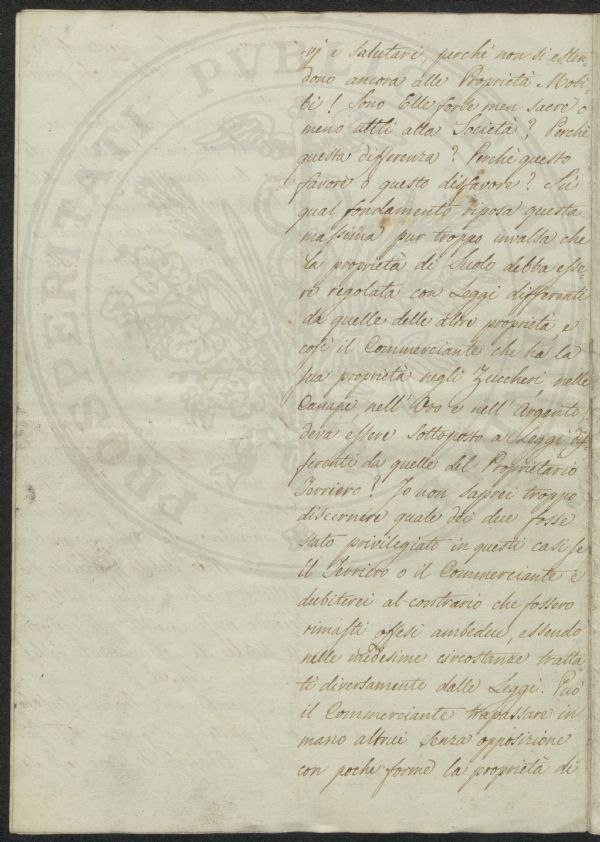 vj e salutari, perchè non si esten-
dono ancora alle Proprietà Mobi-
li! Sono Elle forse men sacre o
meno utili alla Società? Perchè
questa differenza? Perchè questo
favore o questo disfavore? Su
qual fondamento riposa questa
massima pur troppo invalsa che
la proprietà di Suolo debba esse-
re regolata con Leggi differenti
da quelle delle altre proprietà e
così il Commerciante che ha la
sua proprietà negli Zuccheri nelle
Canape nell'Oro e nell'Argento
deva essere sottoposto a Leggi dif-
ferenti da quelle del Proprietario
Terriero? Io non saprei troppo
discernere quale dei due fosse
stato privilegiato in questi casi se
il Terriero o il Commerciante e
dubiterei al contrario che fossero
rimasti offesi ambedue, essendo
nelle medesime circostanze tratta-
ti diversamente dalle Leggi. Può
il Commerciante trapassare in
mano altrui senza opposizione
con poche forme la proprietà di
PROSPERITATI PVBLI